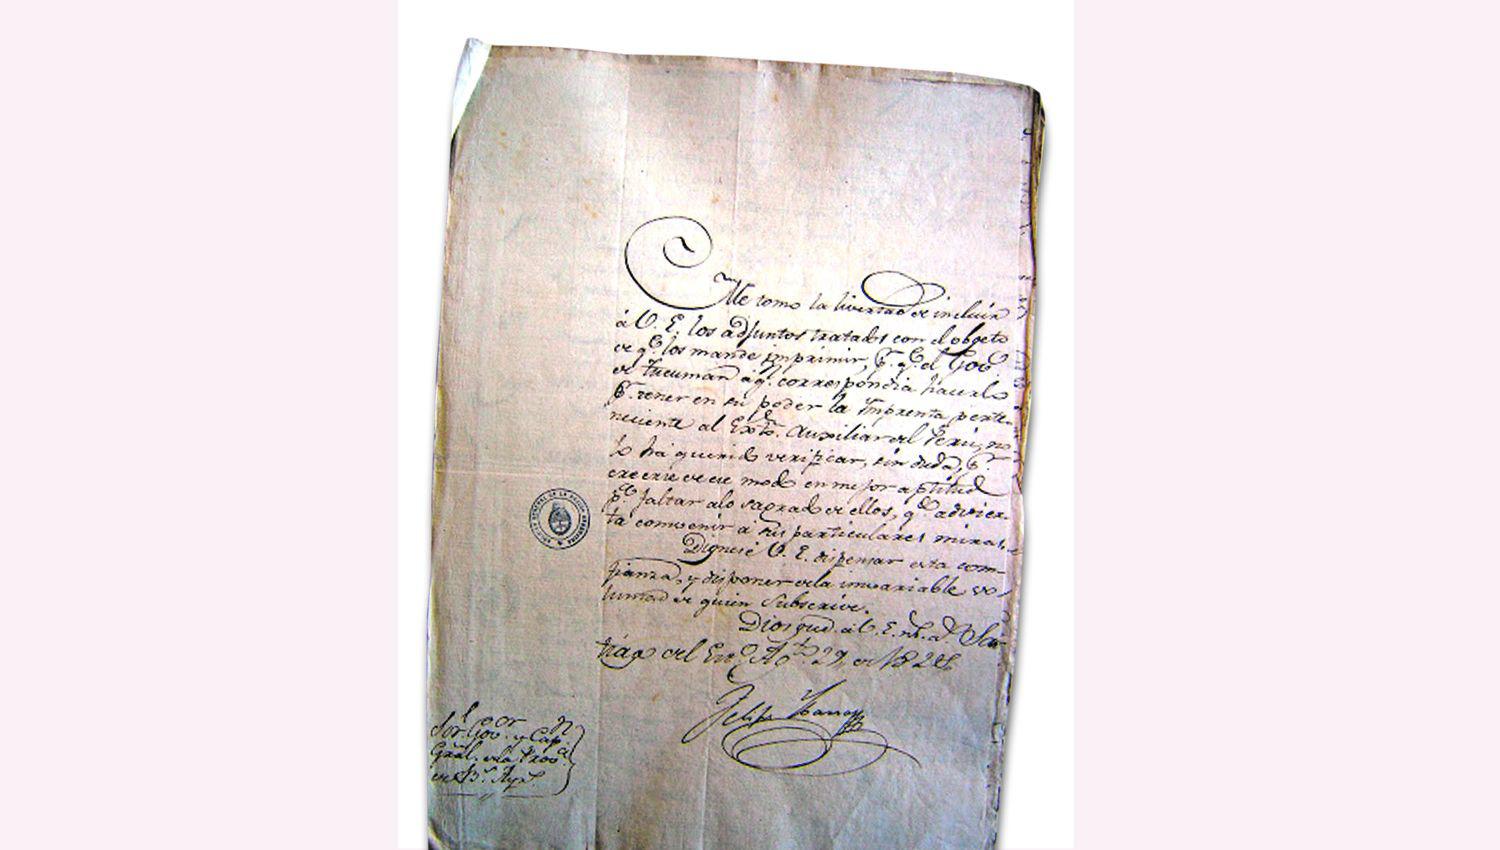 Me tomo la livertad de incluir
á V. E. los adjuntos tratados con el obgeto
de qe. los mande imprimir, pr. qe. el Govo.
de Tucuman á qn. correspondia hacerlo
pr. tener en su poder la Imprenta perte-
neciente al Exto. Auxiliar del Perú, no
lo há querido verificar, sin duda, pr.
creerse de ese modo en mejor aptitud
pa. faltar alo sagrado de ellos, qdo. advier-
ta convenir á sus particulares miras.
Dignese V. E. dispensar esta con-
fianza, y disponer dela invariable vo-
luntad de quien Subscrive.
Dios gue. á V. E. ms. as. San-
tiago del Eno. Agto. 29, de
Felipe Ybarra
Sor. Govor. y Capn.
Gral. dela Prova.
de Bs. Ays.